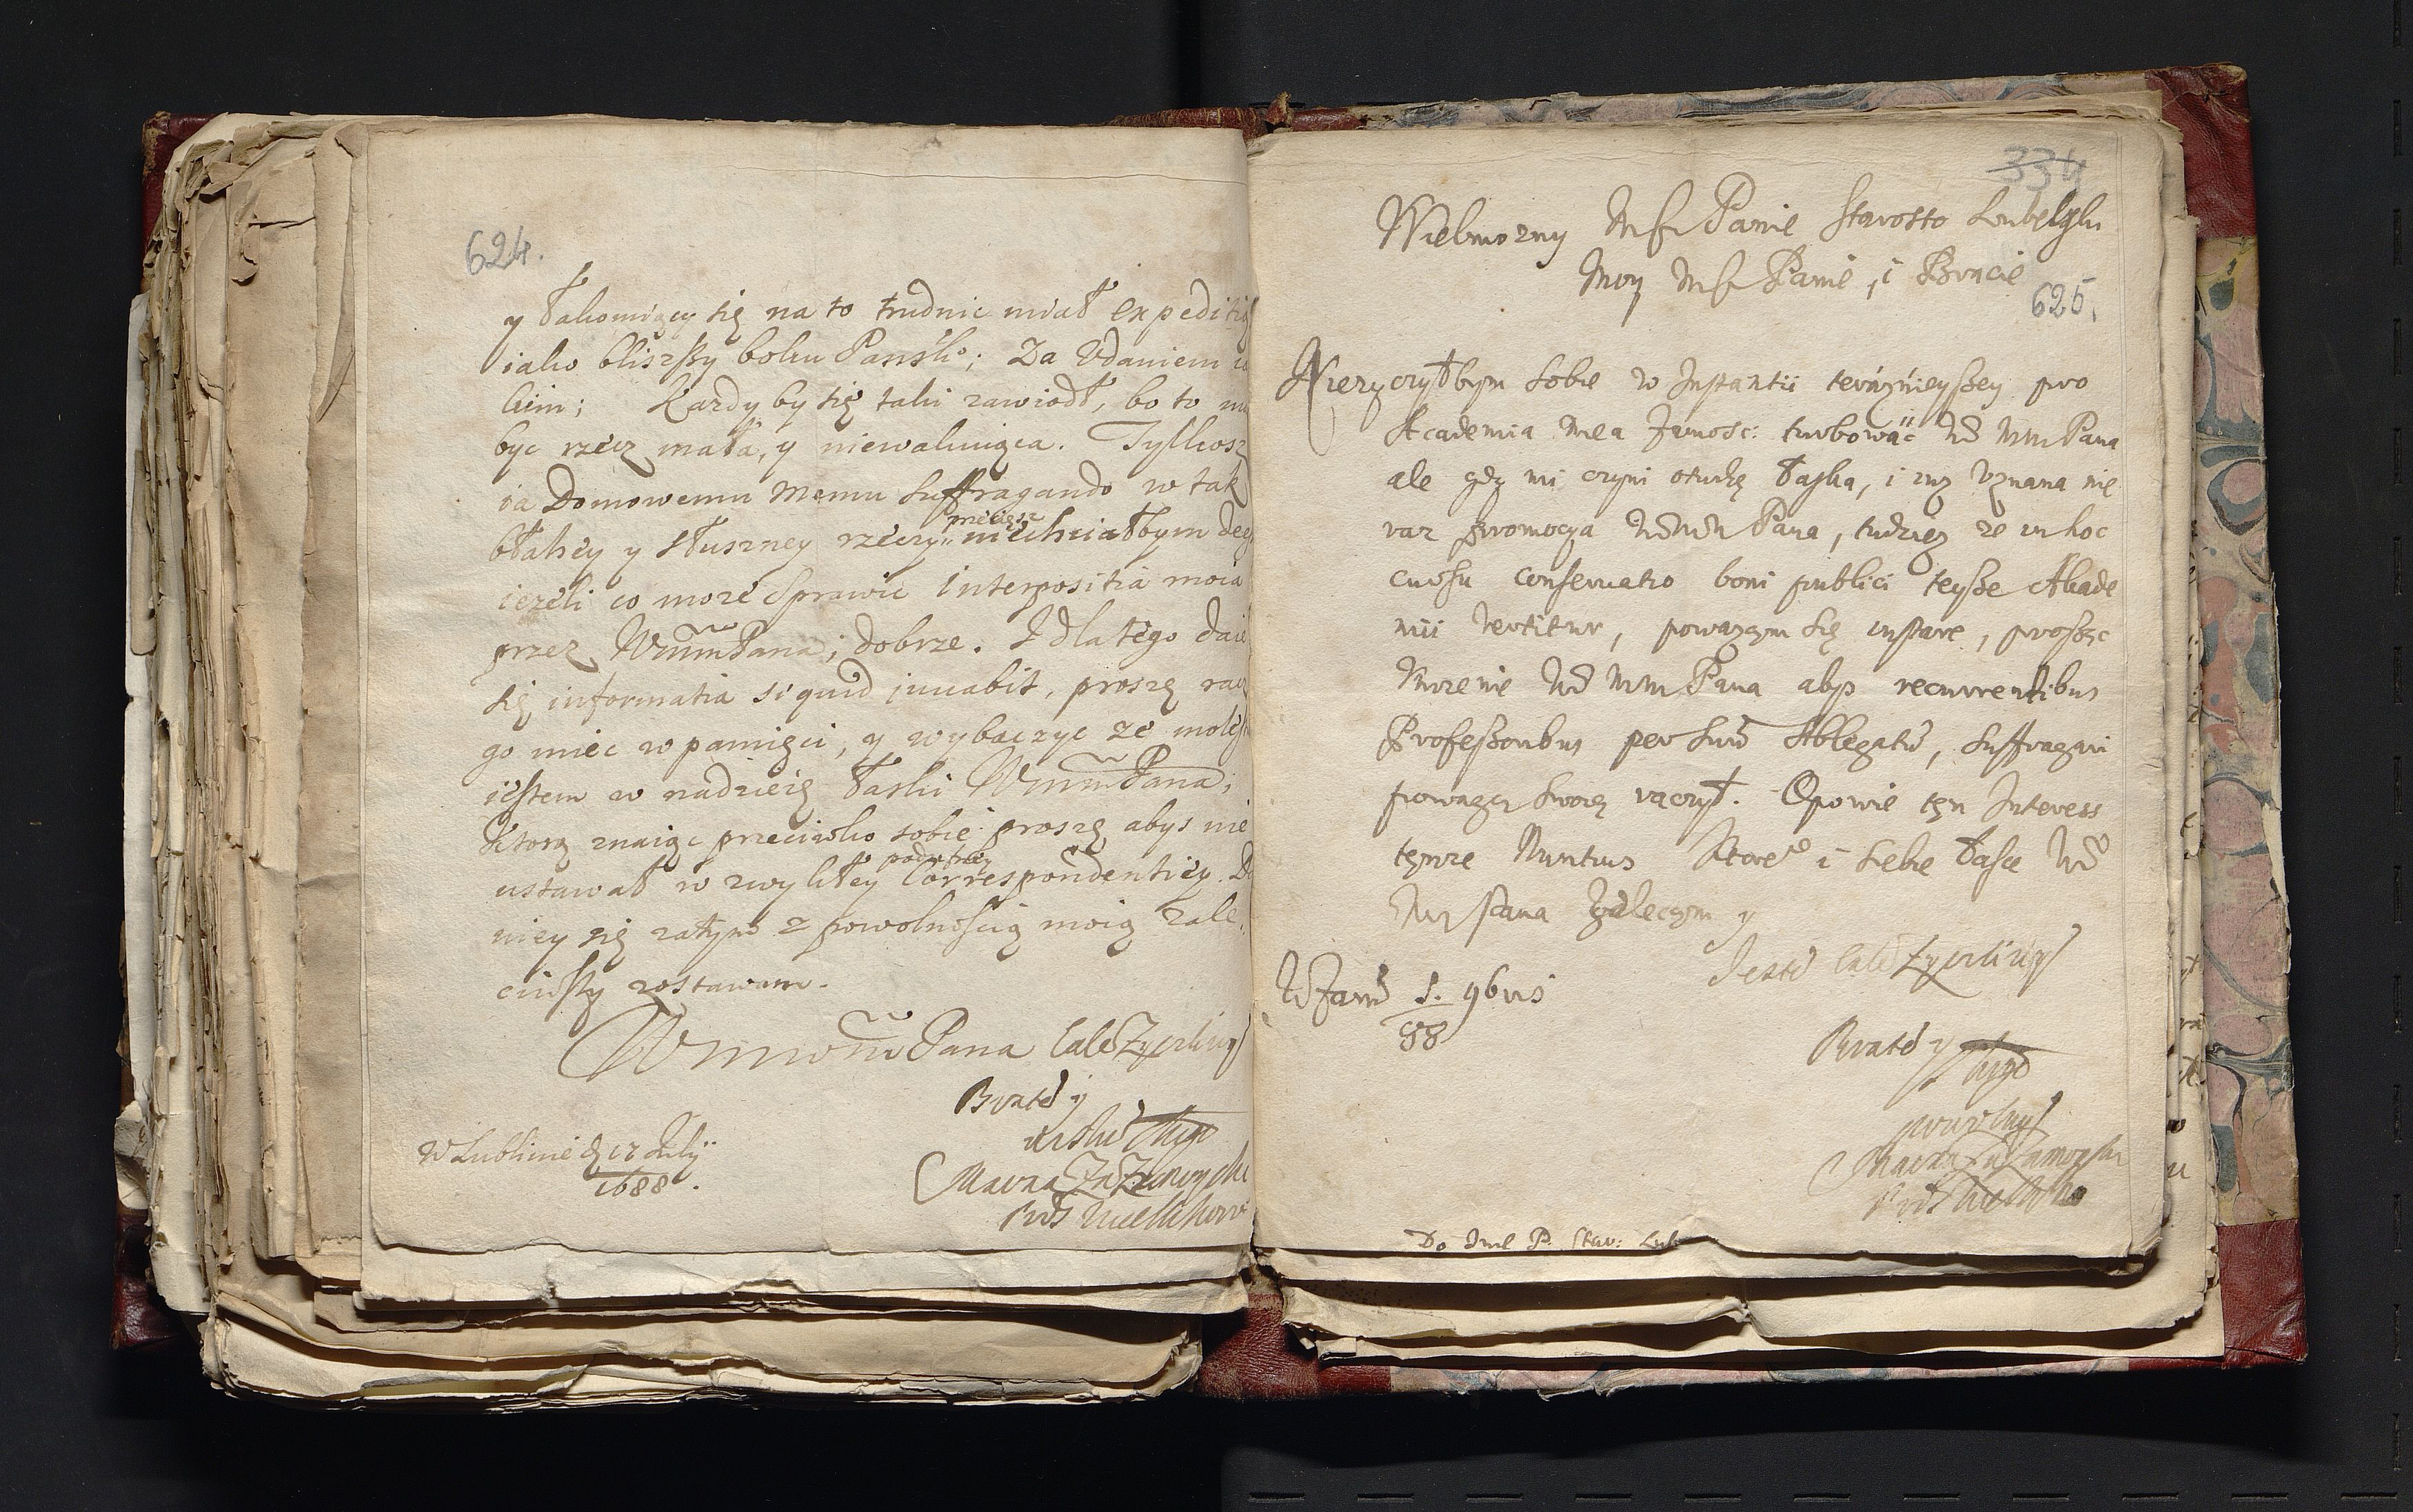 624.
y łakomiący się na to trudnic miał expeditią
iako bliszszy boku Pansko; Za Udaniem
kim; Kazdy by się taki zawiodł, bo to
byc rzecz mała, y niewakuiąca. Tylkosz
ia Domowemu Memu Suffragando w tak
przeciesz
błahey y słuszney rzeczy niechciałbym
iezeli co moze sprawic Interpositia moia
przez WmmPana; dobrze. I dla tego daie
się informatia si quid iuuabit, proszę racz
go miec w pamięci, y wybaczyc ze
iestem w nadzieię łaski WmmPana;
Ktorą znaiąc przeciwko sobie proszę abys nie
ustawał w zwykłey Correspondentiey.
niey się zatym z powolnością moią zale
cinszy zostawam.
Pana cale Zyczliwy
Bratem y
Sługa
Marcin Zamoyski
w Lublinie d 12 Julij
1688.
334
Wielmozny Mści Panie Starosto Lubelski
Moy Mści Panie, i Bracie
625.
Nie zyczyłbym sobie w Instantii teraznieyszey pro
Academia mea Zamosc: turbować WM MM Pana
ale gdy mi czyni otuchę łaska, i iuz Uznana nie
raz promocya Pana, tudziez ze in hoc
cursu conseruatio boni publici teysze Akade
mii vertitur, powazam się instare, prosząc
WM MM Pana abys recurrentibus
Professoribus per suum Ablegatum, suffragari
powagą swoią raczył. Opowie ten Interess
tenze Nuntius Ktorego i siebie łasce WM
Pana zalecam y
Jestem cale zyczliwym
W Zam 5. 9bris
88
Bratem y Sługą
powolnym
Marcin Zamoyski
Do Jme P. Star: Lub